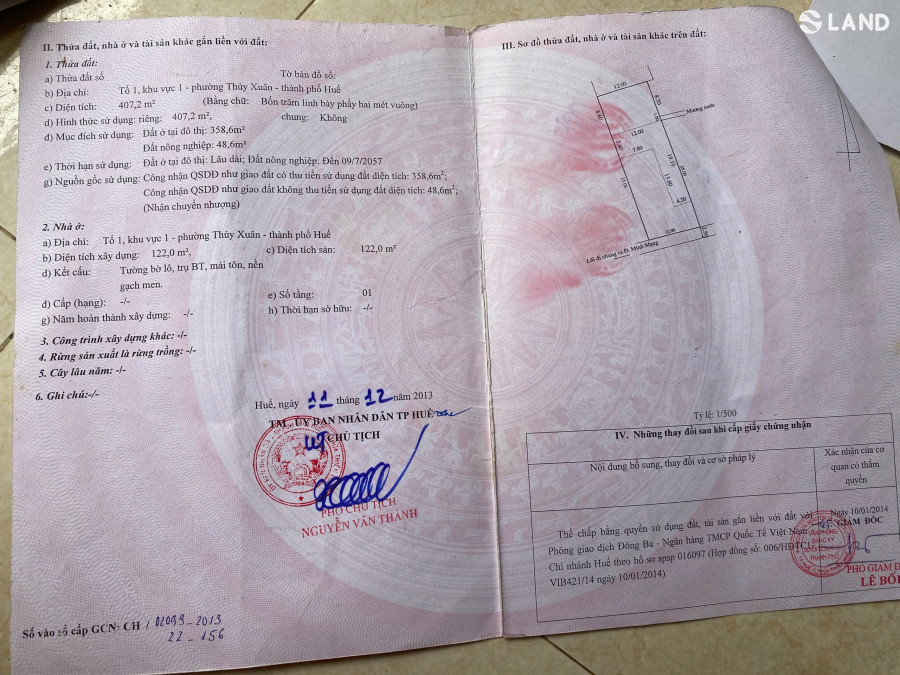 LAND
II. Thửa đất, nhà ở và tài sản khác gắn liền với đất:
1. Thửa đất:
a) Thửa đất số
Tờ bản đồ số:
b) Địa chỉ: Tổ 1, khu vực 1 - phường Thủy Xuân - thành phố Huế
c) Diện tích: 407,2 m²
(Bằng chữ: Bốn trăm linh bảy phẩy hai mét vuông)
d) Hình thức sử dụng: riêng: 407,2 m², chung: Không
đ) Mục đích sử dụng: Đất ở tại đô thị: 358,6m²
Đất nông nghiệp: 48,6m²
e) Thời hạn sử dụng: Đất ở tại đô thị: Lâu dài; Đất nông nghiệp: Đến 09/7/2057
g) Nguồn gốc sử dụng: Công nhận QSDĐ như giao đất có thu tiền sử dụng đất diện tích: 358,6m²;
Công nhận QSDĐ như giao đất không thu tiền sử dụng đất diện tích: 48,6m²;
(Nhận chuyển nhượng)
2. Nhà ở:
a) Địa chỉ: Tổ 1, khu vực 1 - phường Thủy Xuân - thành phố Huế
b) Diện tích xây dựng: 122,0 m², c) Diện tích sàn: 122,0 m²
d) Kết cấu: Tường bờ lô, trụ BT, mái tôn, nền
gạch men.
đ) Cấp (hạng): -/-
e) Số tầng: 01
g) Năm hoàn thành xây dựng: -/-
h) Thời hạn sở hữu: -/-
3. Công trình xây dựng khác: -/-
4. Rừng sản xuất là rừng trồng: -/-
5. Cây lâu năm: -/-
6. Ghi chú:-/-
Huế, ngày 11 tháng 12 năm 2013
TM. ỦY BAN NHÂN DÂN TP HUẾ
KT CHỦ TỊCH
PHÓ CHỦ TỊCH
NGUYỄN VĂN THÀNH
Số vào sổ cấp GCN: CH / 02093-2013
22-156
III. Sơ đồ thửa đất, nhà ở và tài sản khác trên đất:
12.00
Mương nước
12.00
7.80
19.10
13.80
4.20
12.00
Lối đi chung ra Đ. Minh Mạng
Tỷ lệ: 1/500
IV. Những thay đổi sau khi cấp giấy chứng nhận
Nội dung bổ sung, thay đổi và cơ sở pháp lý
Xác nhận của cơ
quan có thẩm
quyền
Thế chấp bằng quyền sử dụng đất, tài sản gắn liền với đất với
Phòng giao dịch Đông Ba - Ngân hàng TMCP Quốc Tế Việt Nam
Chi nhánh Huế theo hồ sơ spsp 016097 (Hợp đồng số: 006/HĐTC1
VIB421/14 ngày 10/01/2014)
Ngày 10/01/2014
GIÁM ĐỐC
PHÓ GIÁM Đ
LÊ BỐ